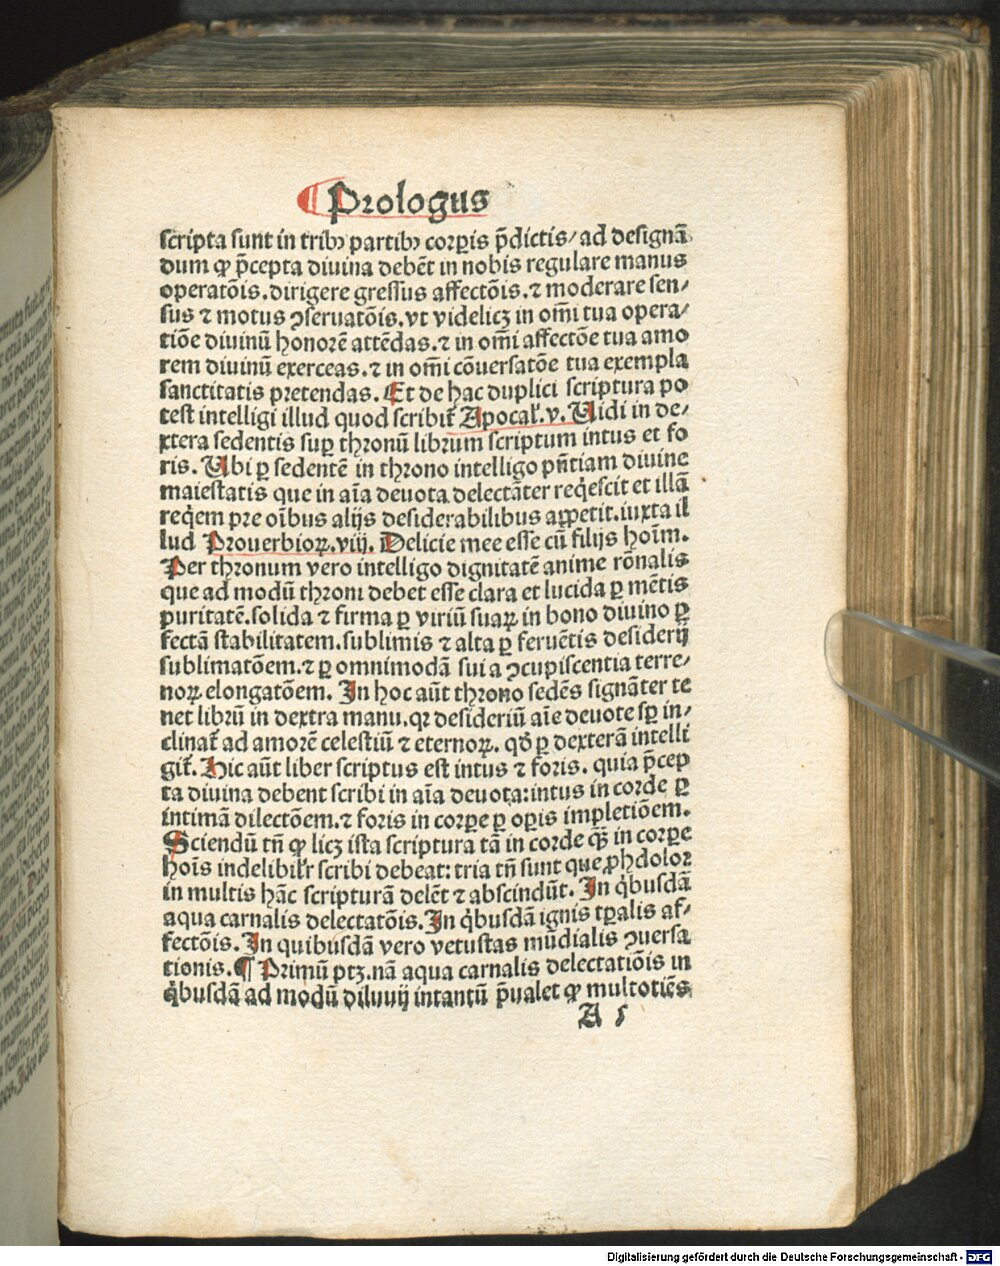 ¶ Prologus
scripta sunt in tribꝰ partibꝰ corꝑis p̄dictis/ ad designā
dum ꝙ p̄cepta diuina debēt in nobis regulare manus
operatōis. dirigere gressus affectōis. ⁊ moderare sen/
sus ⁊ motus ꝯseruatōis. vt videlicꝫ in om̄i tua opera/
tiōe diuinū honorē attēdas. ⁊ in om̄i affectōe tua amo
rem diuinū exerceas. ⁊ in om̄i cōuersatōe tua exempla
sanctitatis pretendas. Et de hac duplici scriptura po
test intelligi illud quod scribit̄ Apocal̓. v. Uidi in de/
xtera sedentis suꝑ thronū librum scriptum intus et fo
ris. Ubi ꝑ sedentē in throno intelligo pn̄tiam diuine
maiestatis que in aīa deuota delectāter req̇escit et illā
req̇em pre oībus alijs desiderabilibus appetit. iuxta il
lud Prouerbioꝝ. viij. Delicie mee esse cū filijs hoīm.
Per thronum vero intelligo dignitatē anime rōnalis
que ad modū throni debet esse clara et lucida ꝑ mētis
puritatē. solida ⁊ firma ꝑ viriū suaꝝ in bono diuino ꝑ
fectā stabilitatem. sublimis ⁊ alta ꝑ feruētis desiderij
sublimatōem. ⁊ ꝑ omnimodā sui a ꝯcupiscentia terre/
noꝝ elongatōem. In hoc aūt throno sedēs signāter te
net librū in dextra manu. qꝛ desideriū aīe deuote sꝑ in/
clinat̄ ad amorē celestiū ⁊ eternoꝝ. qd̓ ꝑ dexterā intelli
git̄. Hic aūt liber scriptus est intus ⁊ foris. quia p̄cep
ta diuina debent scribi in aīa deuota: intus in corde ꝑ
intimā dilectōem. ⁊ foris in corꝑe ꝑ oꝑis impletiōem.
Sciendū tn̄ ꝙ licꝫ ista scriptura tā in corde qꝫ̄ in corꝑe
hoīs indelibil̓r scribi debeat: tria tn̄ sunt que ꝓhdolor
in multis hāc scripturā delēt ⁊ abscindūt. In q̇busdā
aqua carnalis delectatōis. In q̇busdā ignis tꝑalis af/
fectōis. In quibusdā vero vetustas mūdialis ꝯuersa
tionis. ¶ Primū ptꝫ. nā aqua carnalis delectatiōis in
q̇busdā ad modū diluuij intantū p̄ualet ꝙ multotiēs
A 5
Digitalisierung gefördert durch die Deutsche Forschungsgemeinschaft - DFG